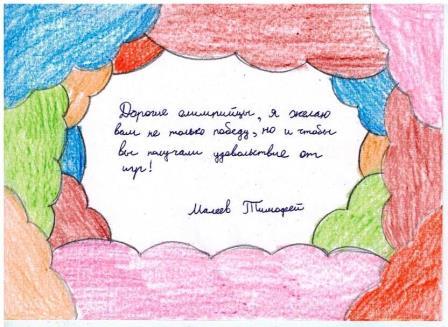 Дорогие олимпийцы, я желаю
вам не только победу, но и чтобы
вы получали удовольствие от
игр!
Малеев Тимофей